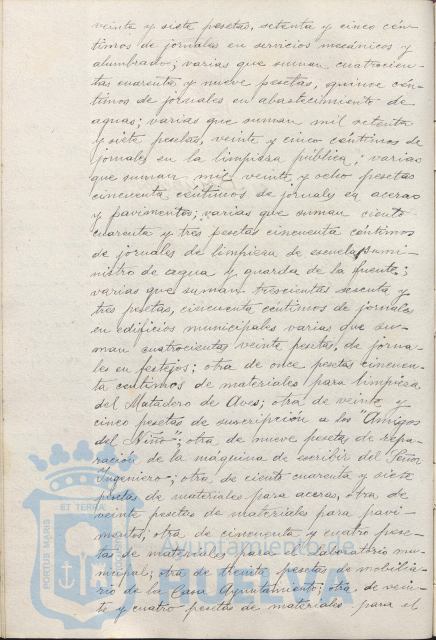 veinte y siete pesetas, setenta y cinco cén-
timos de jornales en servicios mecánicos y
alumbrado; varias que suman cuatrocien-
tas cuarenta y nueve pesetas, quince cén-
timos de jornales en abastecimiento de
aguas; varias que suman mil setenta
y siete pesetas, veinte y cinco céntimos de
jornales en la limpieza pública; varias
que suman mil veinte y ocho pesetas
cincuenta céntimos de jornales en aceras
y pavimentos; varias que suman ciento
cuarenta y tres pesetas cincuenta céntimos
de jornales de limpieza de escuelas, sumi-
nistro de agua y guarda de la fuente;
varias que suman trescientas sesenta y
tres pesetas, cincuenta céntimos de jornales
en edificios municipales varias que su-
man cuatrocientas veinte pesetas, de jorna-
les en festejos; otra de once pesetas cincuen-
ta centimos de materiales para limpieza
del Matadero de Aves; otra de veinte y
cinco pesetas de suscripción a los "Amigos
del Niño"; otra de nueve pesetas de repa-
ración de la máquina de escribir del Señor
Ingeniero; otra de ciento cuarenta y siete
pesetas de materiales para aceras, otra de
veinte pesetas de materiales para pavi-
mentos; otra de cincuenta y cuatro pese-
tas de materiales para el Laboratorio mu-
nicipal; otra de treinta pesetas de mobilia-
rio de la Casa Ayuntamiento; otra de vein-
te y cuatro pesetas de materiales para el
PORTUS MARIS ET TERRAE
Ayuntamiento de
HUELVA